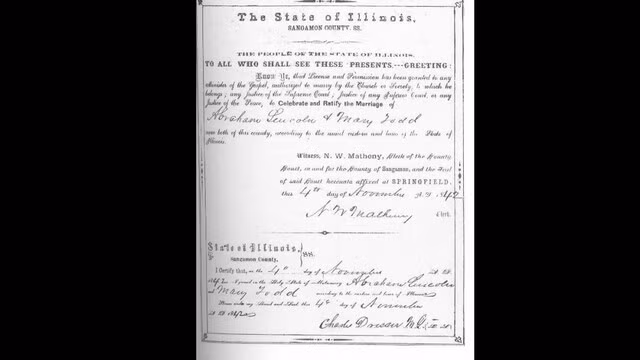 The State of Illinois,
SANGAMON COUNTY. SS.
THE PEOPLE OF THE STATE OF ILLINOIS.
TO ALL WHO SHALL SEE THESE PRESENTS.---GREETING:
KNOW YE, that License and Permission has been granted to any
Minister of the Gospel, authorized to marry by the Church or Society, to which he
belongs; any Justice of the Supreme Court; Justice of any Inferior Court, or any
Justice of the Peace, to Celebrate and Ratify the Marriage of
Abraham Lincoln & Mary Todd
now both of this county, according to the usual custom and laws of the State of
Illinois.
Witness, N. W. Matheny, Clerk of the County
Court, in and for the County of Sangamon, and the Seal
of said Court hereunto affixed at SPRINGFIELD,
this 4th day of November A.D. 1842
N W Matheny Clerk.
State of Illinois,
Sangamon County. SS.
I Certify that, on the 4th day of November A.D.
1842 I joined in the Holy State of Matrimony Abraham Lincoln
& Mary Todd according to the custom and laws of Illinois
Given under my Hand and Seal this 4th day of November
A.D. 1842
Charles Dresser